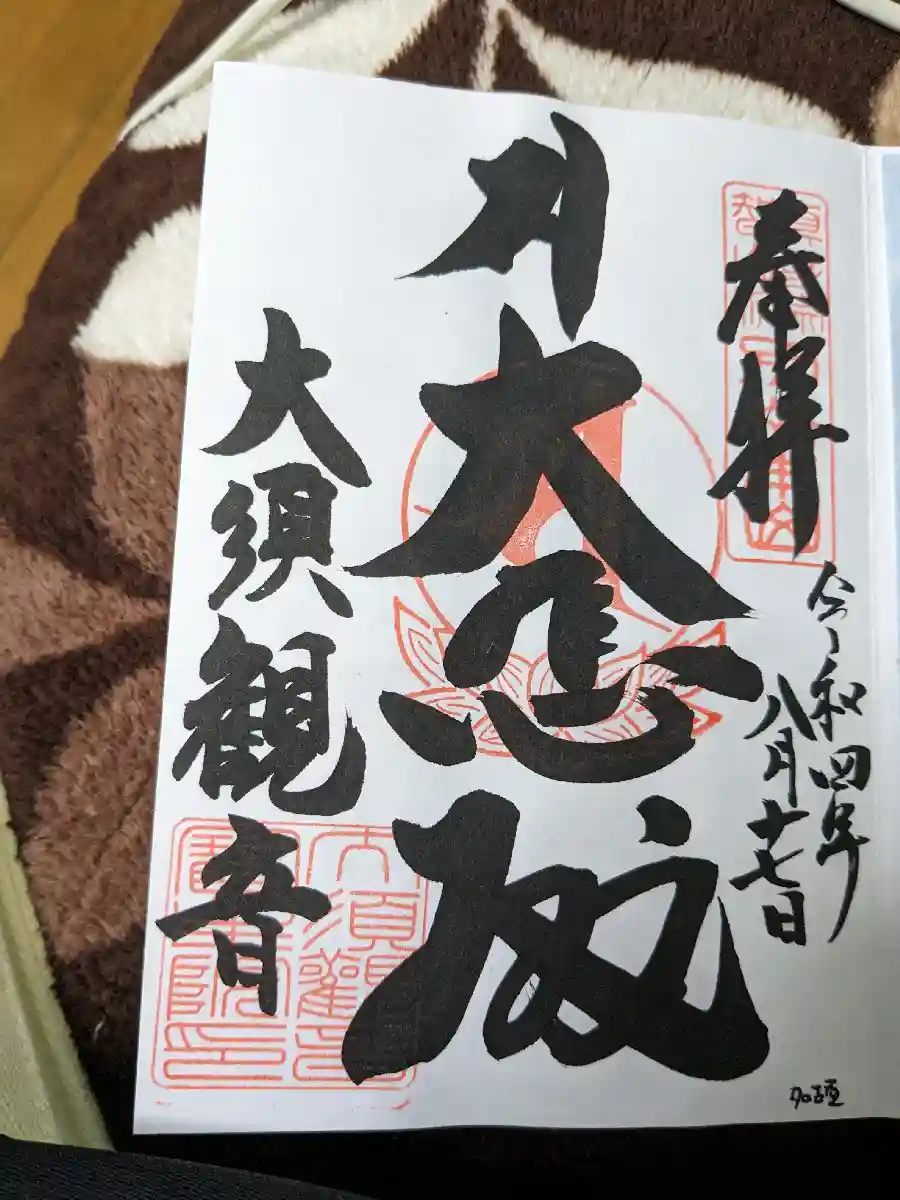 奉拝
令和四年
八月十七日
大悲殿
大須観音